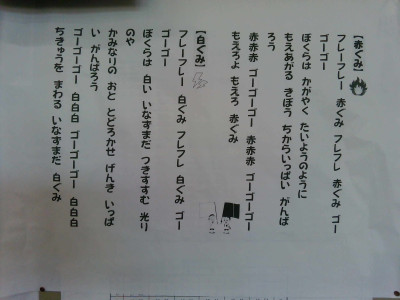 【赤ぐみ】
フレーフレー 赤ぐみ フレフレ 赤ぐみ ゴー
ゴーゴー
ぼくらは かがやく たいようのように
もえあがる きぼう ちからいっぱい がんば
ろう
赤赤赤 ゴーゴーゴー 赤赤赤 ゴーゴーゴー
もえろよ もえろ 赤ぐみ
【白ぐみ】
フレーフレー 白ぐみ フレフレ 白ぐみ ゴー
ゴーゴー
ぼくらは 白い いなずまだ つきすすむ 光り
のや
かみなりの おと とどろかせ げんき いっぱ
い がんばろう
ゴーゴーゴー 白白白 ゴーゴーゴー 白白白
ちきゅうを まわる いなずまだ 白ぐみ